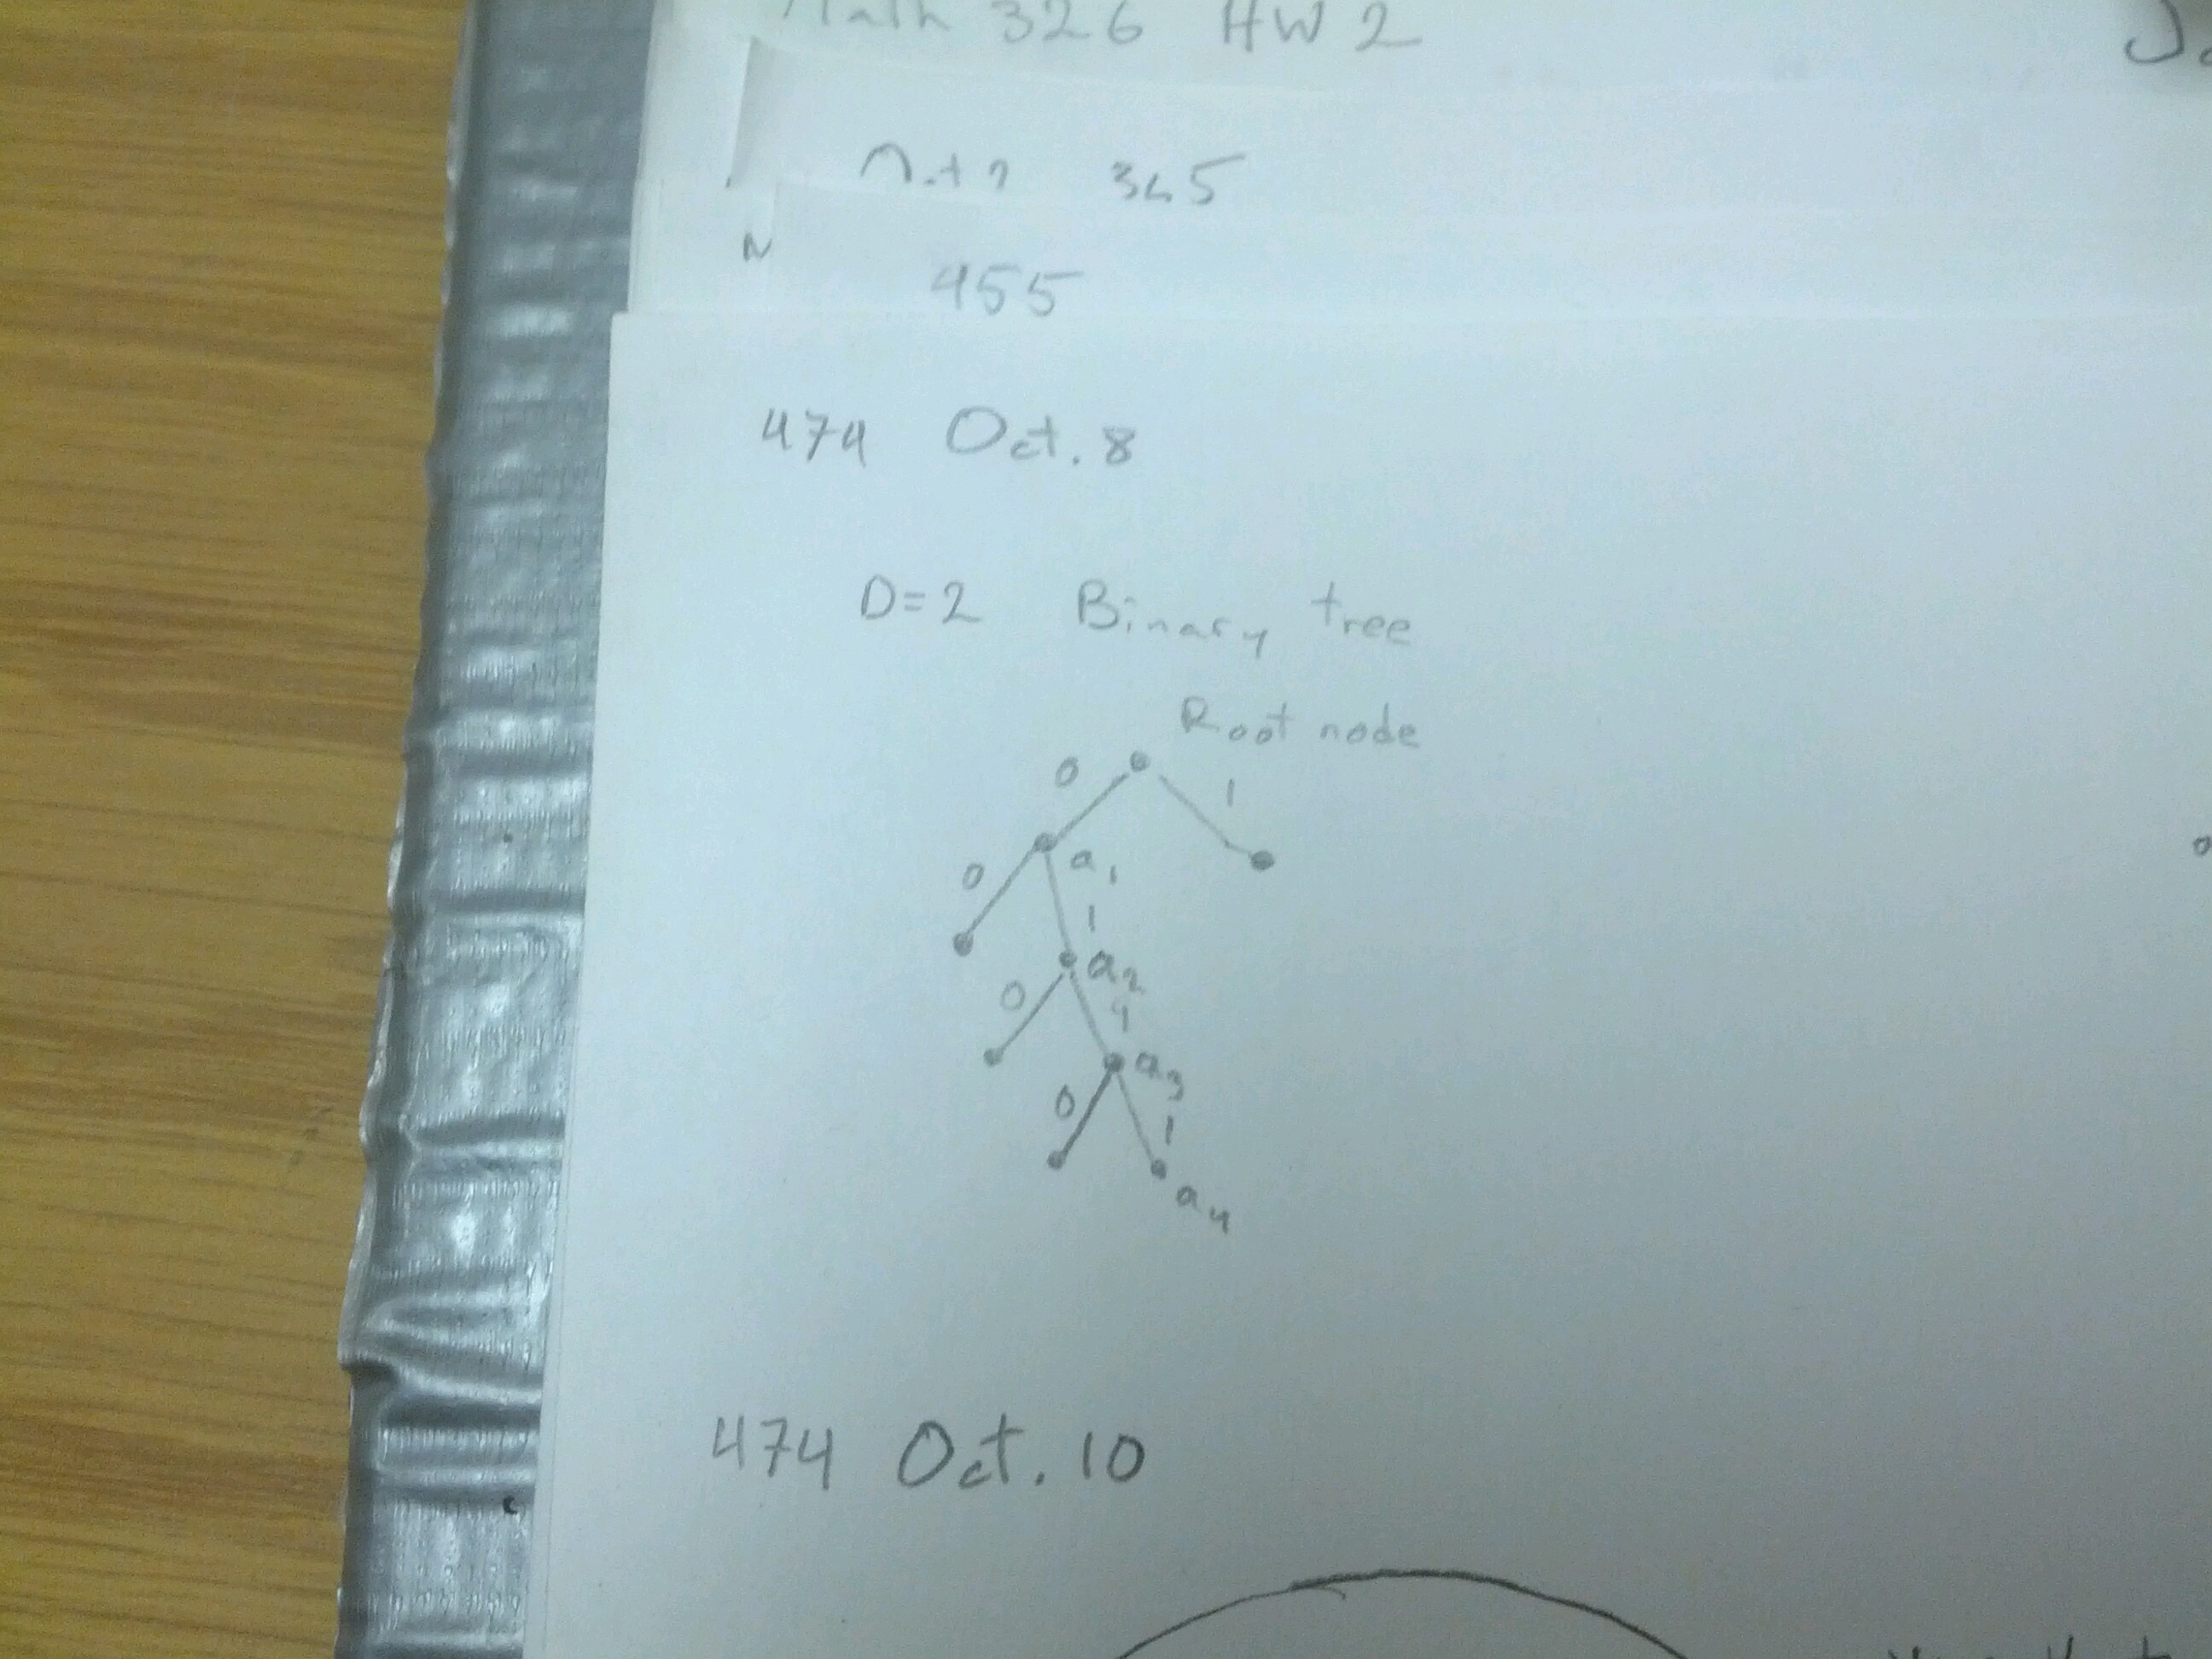 326 HW 2
345
N
455
474 Oct. 8
D=2 Binary tree
Root node
0 1
0 a1
1
a2
0 1
a3
0 1
a4
474 Oct. 10